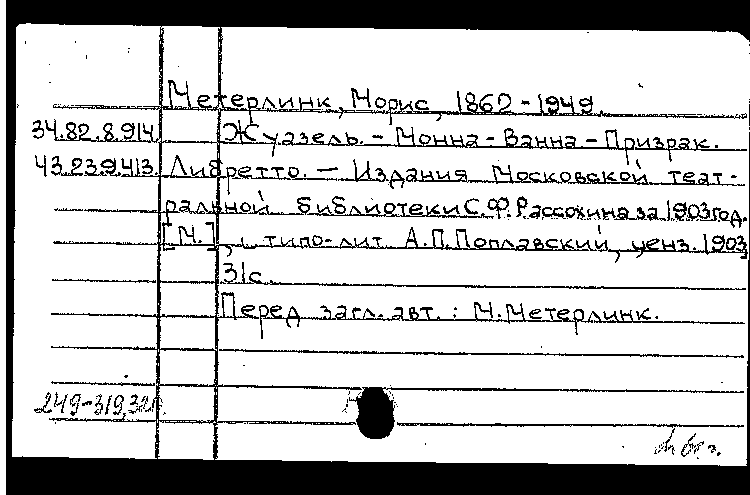 Метерлинк, Морис, 1862-1949.
34.82.8.914 Жуазель. - Монна-Ванна - Призрак.
43.23.9.413 Либретто. - Издания Московской теат-
ральной библиотеки С.Ф. Рассохина за 1903 год.
[М.], типо-лит. А.П. Поплавский, ценз. 1903
31с.
Перед загл. авт.: М. Метерлинк.
249-319,32